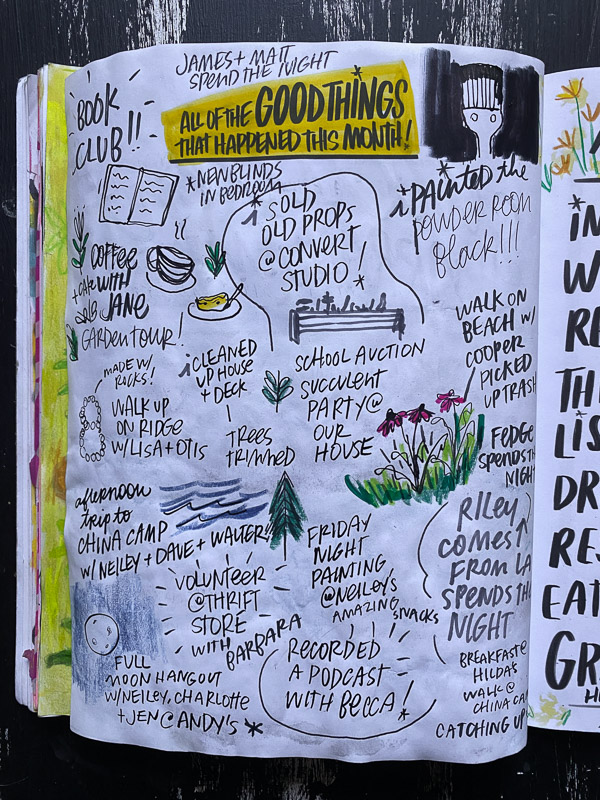 JAMES + MATT
SPEND THE NIGHT
ALL OF THE GOOD THINGS
THAT HAPPENED THIS MONTH!
BOOK
CLUB!!
*NEW BLINDS
IN BEDROOM
i SOLD
OLD PROPS
@ CONVERT
STUDIO!
*
i PAINTED the
POWDER ROOM
black!!!
COFFEE
+ CAKE WITH
JANE
GARDEN TOUR!
MADE W/
ROCKS!
WALK UP
ON RIDGE
W/LISA + OTIS
i CLEANED
UP HOUSE
+ DECK
TREES
TRIMMED
SCHOOL AUCTION
SUCCULENT
PARTY @
OUR
HOUSE
WALK ON
BEACH W/
COOPER
PICKED
UP TRASH
FEDGE
SPENDS TH
NIGHT
afternoon
trip to
CHINA CAMP
W/ NEILEY + DAVE + WALTER!
VOLUNTEER
@THRIFT
STORE
WITH BARBARA
FRIDAY
NIGHT
PAINTING
@NEILEY'S
AMAZING SNACKS
RILEY
COMES
FROM LA
SPENDS TH
NIGHT
FULL
MOON HANGOUT
W/NEILEY, CHARLOTTE
+ JEN @ ANDY'S *
RECORDED
A PODCAST
WITH BECCA!
BREAKFAST @
HILDA'S
WALK @
CHINA CA
CATCHING UP
IN
W
RE
TH
LIS
DR
RES
EAT
GR